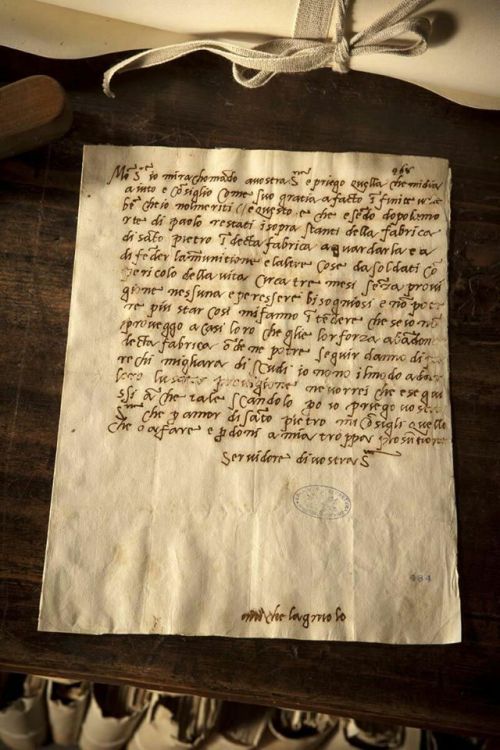 968
Mo S io mirachomādo avostra S e priego quella che mi dia
aiuto e cōsiglio come suo gratia a facto ī finite
bē che io nol meriti e questo e che esēdo dopo la mo
rte di paolo restati i sopra stanti della fabrica
di sāto pietro ī decta fabrica a guardarla e a
di fēder la munitione e laltre cose da soldati cō
pericolo della vita circa tre mesi sēza provi
gione nessuna e per essere bisogniosi e nō pote
re piu star cosi mi fanno ītēdere che se io nō
proveggo a casi loro che glie lor forza abādon
decta fabrica ōde ne potre seguir danno di
rechi migliara di scudi io nō o il modo a dare
loro provigione ne vorrei che se gui
ssi a che tale scādolo po io priego vostra
S che p amor di sāto pietro mi cōsigli quello
che o a fare e p doni a mia troppa prosūtione
servidore di vostra S
484
michelagniolo